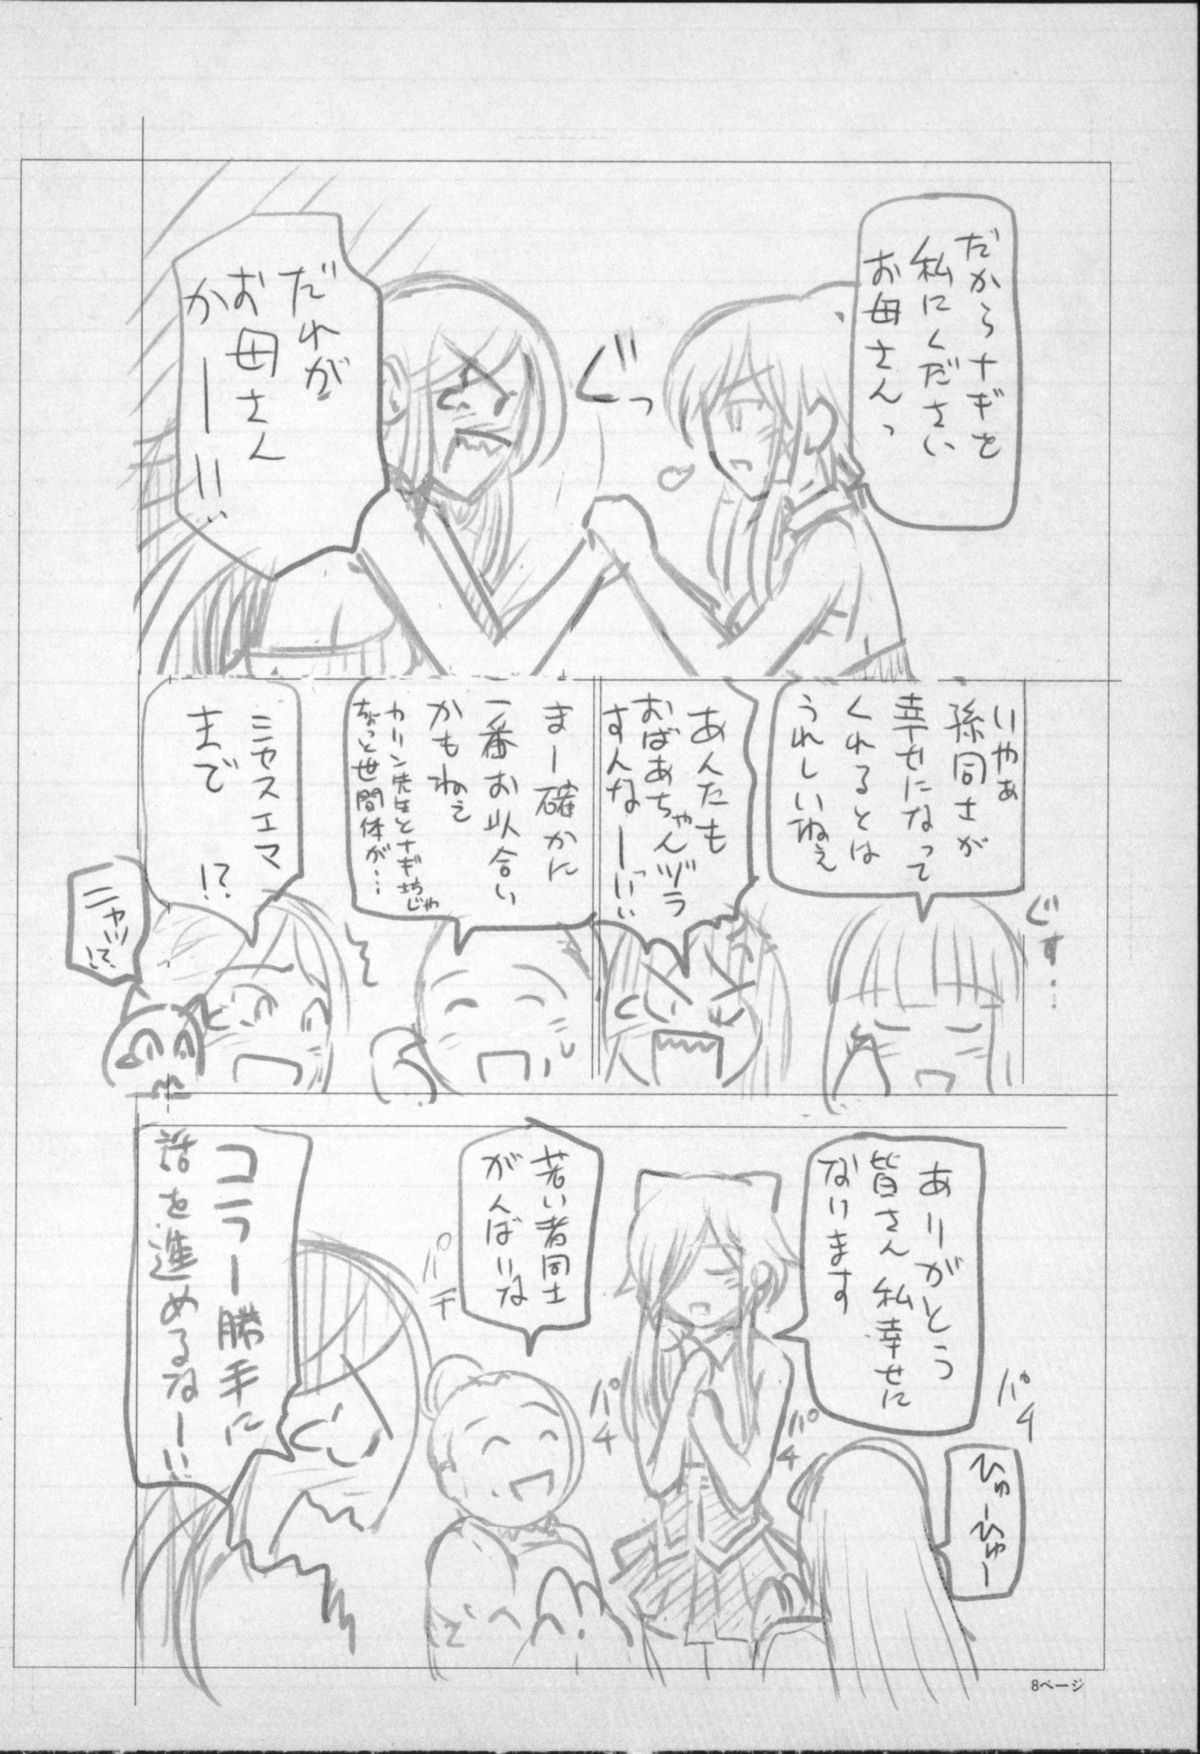 だからナギを
私にください
お母さんっ
ぐっ
だれが
お母さん
かーー!!
いやぁ
孫同士が
幸せになって
くれるとは
うれしいねぇ
ぐす…
あんたも
おばあちゃんヅラ
すんなーっ!!
まー確かに
一番お似合い
かもねぇ
カリン先生とナギ坊じゃ
ちょっと世間体が…
ミヤスエマ
まで!?
ニャッ!?
ありがとう
皆さん私幸せに
なります
パチ
ひゅーひゅー
パチ
パチ
若い者同士
がんばいな
パチ
コラー勝手に
話を進めるなー!!
8ページ